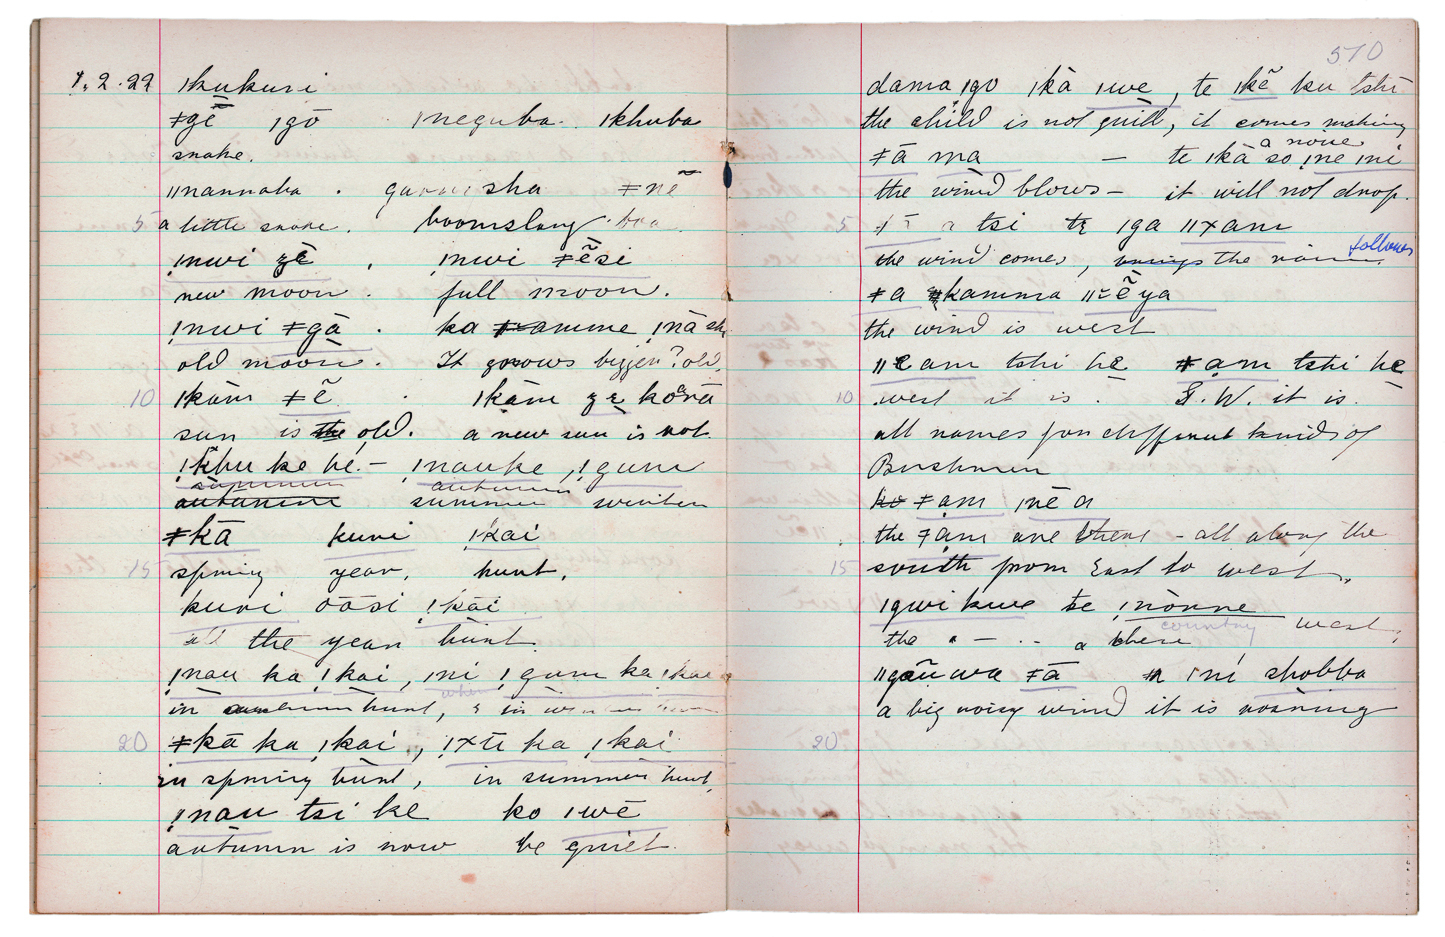 1.2.22 ǀkukuri
ǂgē̃ ǀgō ǀneguba. ǀkhuba
snake.
ǁnannaba . sha ǂnē̃
5 a little snake. boomslang
ǃnwi zẽ̱ , ǃnwi ǂẽ̱si
new moon. full moon.
ǃnwi ǂgā . ka ǂamme ǃnā
old moon. It grows bigger? old,
10 ǀkàm ǂẽ . ǀkàm ze̱ koara
sun is the old. a new sun is not.
ǃkhu ke he. – ǃnauke, ǃgum
summer autumn
autumn summer winter
ǂkā kuri ǃkai
15 spring year, hunt.
kuri ōāsi ǃkai
all the year hunt.
ǃnau ka ǃkai, ǀni ǃgum ka ǃkai
when
in autumn hunt, & in winter
20 ǂkā ka ǃkai, ǃxē ka ǃkai
in spring hunt, in summer hunt,
ǃnau tsi ke ko ǀwē
autumn is now be quiet.
510
dama ǀgo ǀkà ǀwe, te ǀkẽ ku tshi
the child is not quiet, it comes making
a noise
ǂā ma — te ǀkā so ǀne ǀni
the wind blows – it will not drop.
5 a tsi te̱ ǀga ǁxam
follows
the wind comes, brings the rain.
ǂa ǂkamma ǁẽya
the wind is west
ǁeam tshi he ǂam tshi he̱
10 west it is. S.W. it is.
all names for different kinds of
Bushmen
ko ǂam ǀnē a
the ǂam are there – all along the
15 south from East to west.
ǀgwi kwe te ǃnònne
country west,
the " – .. a there
ǁgāũwa ǂā ǀní shobba
a big noisy wind it is roaring
20